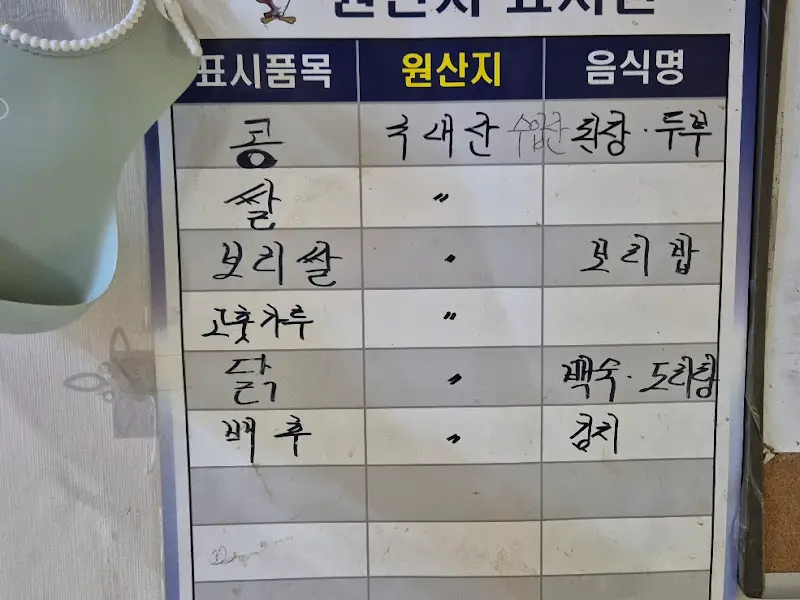 원산지 표시판
표시품목 원산지 음식명
콩 국내산 수입산 된장·두부
쌀 〃
보리쌀 〃 보리밥
고춧가루 〃
닭 〃 백숙·도리탕
배추 〃 김치